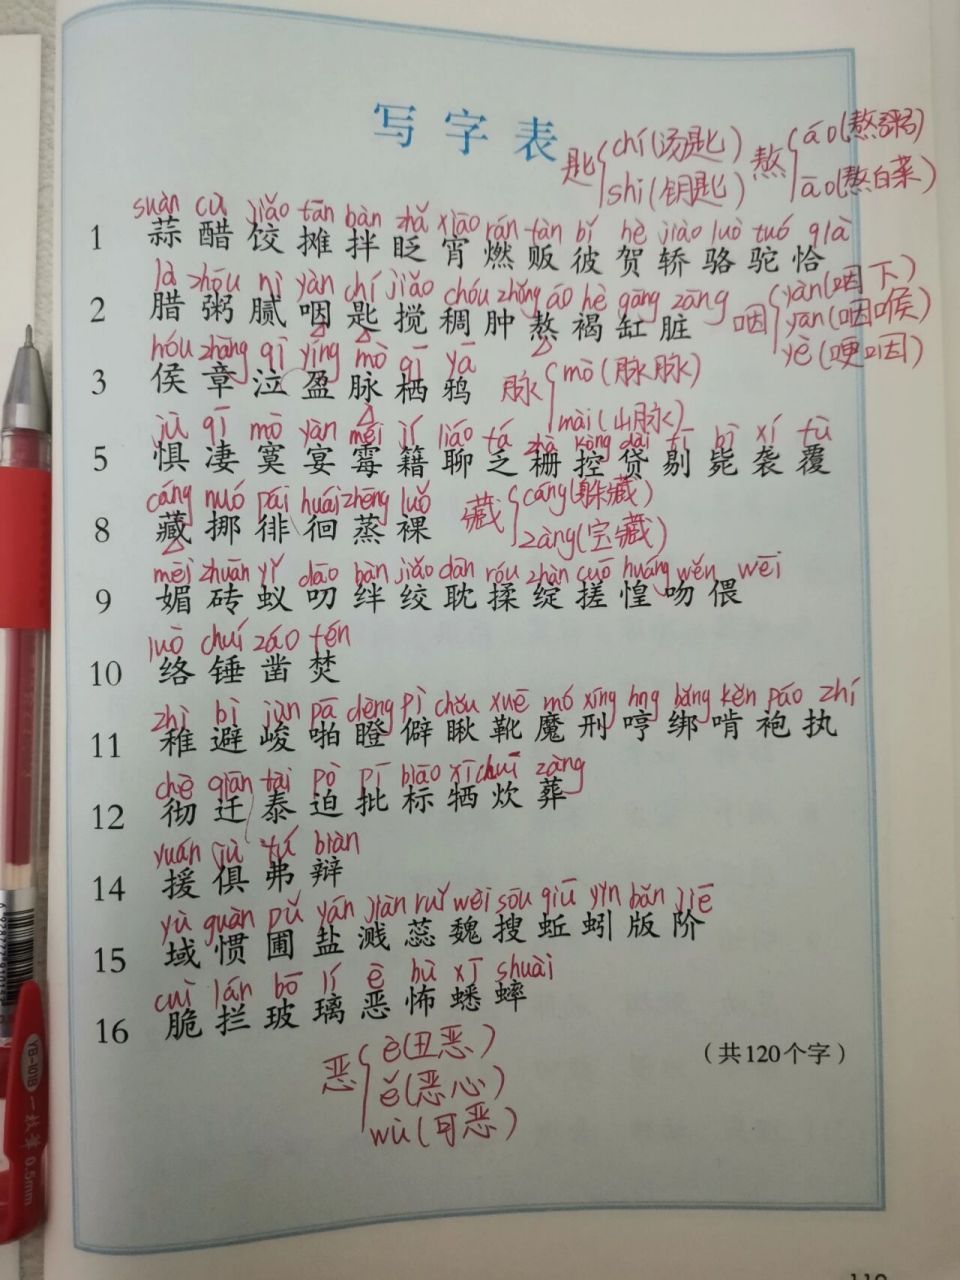 写字表
匙 chí(汤匙) shi(钥匙) 熬 áo(熬粥) āo(熬白菜)
suàn cù jiǎo tān bàn zhǎ xiāo rán fàn bǐ hè jiào luò tuó qià
1 蒜 醋 饺 摊 拌 眨 宵 燃 贩 彼 贺 轿 骆 驼 恰
là zhōu nì yàn chí jiǎo chóu zhǒng áo hè gāng zāng
2 腊 粥 腻 咽 匙 搅 稠 肿 熬 褐 缸 脏
咽 yàn(咽下) yān(咽喉) yè(哽咽)
hóu zhāng qì yíng mò qī yā
3 侯 章 泣 盈 脉 栖 鸦
脉 mò(脉脉) mài(山脉)
jù qī mò yàn méi jí liáo fá zhà kòng dài tī bì xí fù
5 惧 凄 寞 宴 霉 籍 聊 乏 栅 控 贷 剔 毙 袭 覆
cáng nuó pái huái zhēng luǒ
8 藏 挪 徘 徊 蒸 裸
藏 cáng(躲藏) zàng(宝藏)
mèi zhuān yǐ dāo bàn jiǎo dān róu zhàn cuō huáng wěn wēi
9 媚 砖 蚁 叨 绊 绞 耽 揉 绽 搓 惶 吻 偎
luò chuí záo fén
10 络 锤 凿 焚
zhì bì jùn pā dèng pì chǒu xuē mó xíng hng bǎng kěn páo zhí
11 稚 避 峻 啪 瞪 僻 瞅 靴 魔 刑 哼 绑 啃 袍 执
chè qiān tài pò pī biāo xī chuī zàng
12 彻 迁 泰 迫 批 标 牺 炊 葬
yuán jù fú biàn
14 援 俱 弗 辩
yù guàn pǔ yán jiàn ruǐ wèi sōu qiū yǐn bǎn jiē
15 域 惯 圃 盐 溅 蕊 魏 搜 蚯 蚓 版 阶
cuì lán bō lí è bù xī shuài
16 脆 拦 玻 璃 恶 怖 蟋 蟀
恶 è(丑恶) ě(恶心) wù(可恶)
（共120个字）
YB-101B 一枚笔 0.5mm